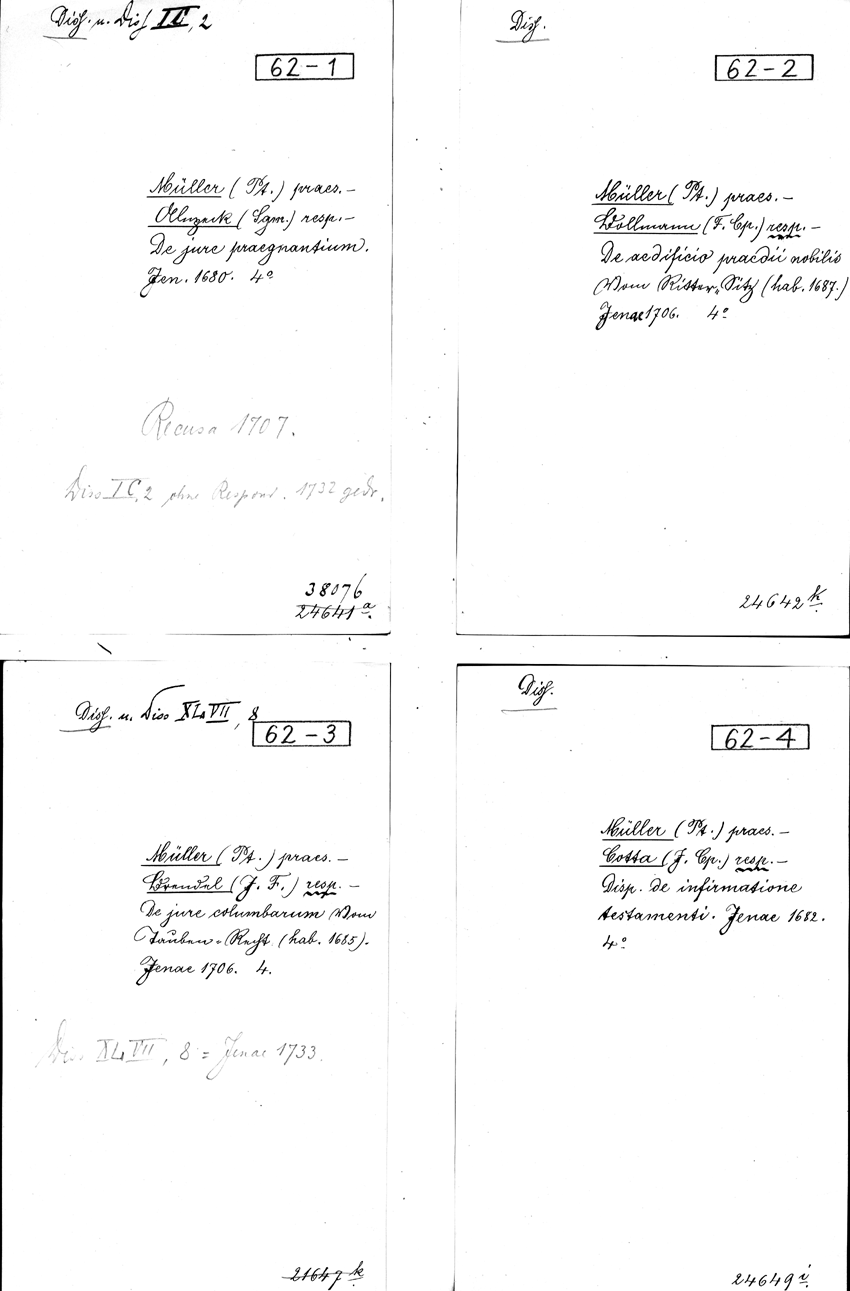 Diss. u. Diss IC, 2
62-1
Müller (Pt.) praes. –
(Sgm.) resp. –
De jure praegnantium.
Jen. 1680. 4°
Recusa 1707.
Diss IC, 2 ohne Respons. 1732 gedr.
38076
24641 a.
Diss.
62-2
Müller (Pt.) praes. –
Wollmann (F. Cp.) resp. –
De aedificio praedii nobilis
Vom Ritter-Sitz (hab. 1687.)
Jenae 1706. 4°
24642 k.
Diss. u. Diss XLVII, 8
62-3
Müller (Pt.) praes. –
Brendel (J. F.) resp. –
De jure columbarum Vom
Tauben-Recht (hab. 1685).
Jenae 1706. 4.
Diss XLVII, 8 = Jenae 1733.
21647 k.
Diss.
62-4
Müller (Pt.) praes. –
Cotta (J. Cp.) resp. –
Disp. de infirmatione
testamenti. Jenae 1682.
4°
24649 i.